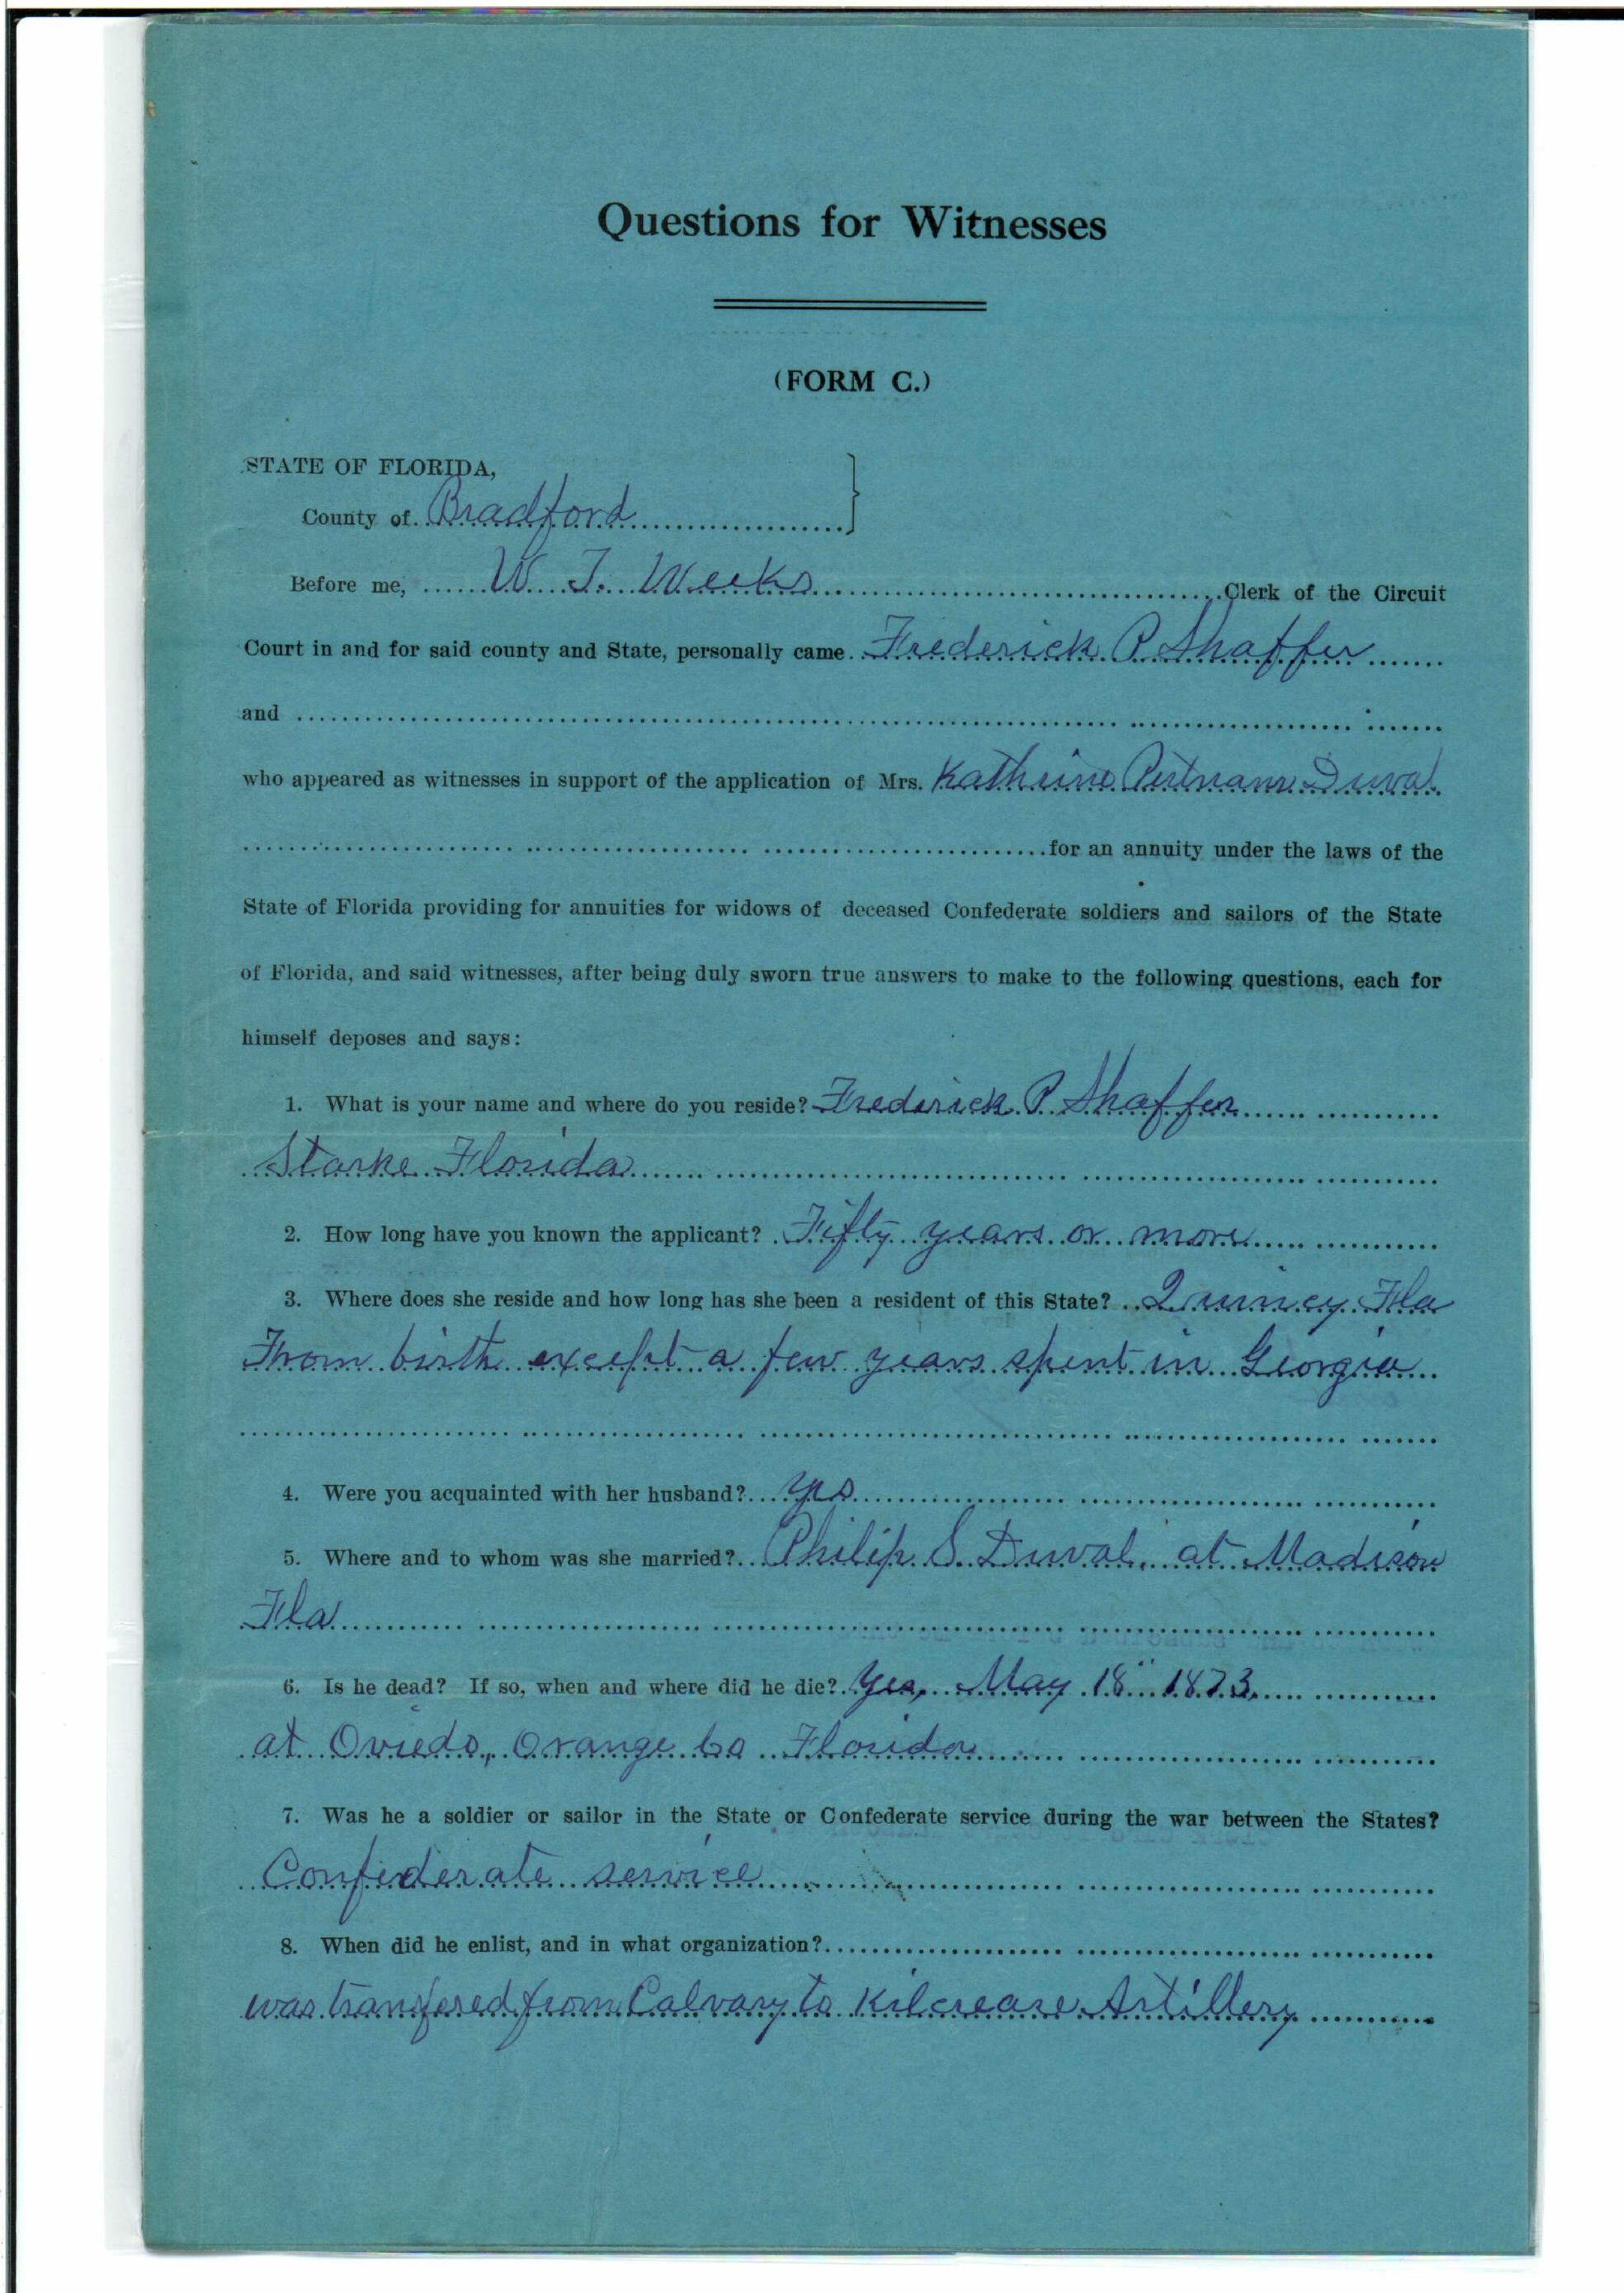 Questions for Witnesses
(FORM C.)
STATE OF FLORIDA,
County of Bradford
Before me, W. T. Weeks Clerk of the Circuit
Court in and for said county and State, personally came Frederick P Shaffer
and
who appeared as witnesses in support of the application of Mrs. Kathrine Putnam Duval
for an annuity under the laws of the
State of Florida providing for annuities for widows of deceased Confederate soldiers and sailors of the State
of Florida, and said witnesses, after being duly sworn true answers to make to the following questions, each for
himself deposes and says:
1. What is your name and where do you reside? Frederick P Shaffer
Starke Florida
2. How long have you known the applicant? Fifty years or more
3. Where does she reside and how long has she been a resident of this State? Quincy Fla
From birth except a few years spent in Georgia
4. Were you acquainted with her husband? yes
5. Where and to whom was she married? Philip S. Duval, at Madison
Fla
6. Is he dead? If so, when and where did he die? Yes, May 18" 1873
at Oviedo, Orange Co Florida
7. Was he a soldier or sailor in the State or Confederate service during the war between the States?
Confederate service
8. When did he enlist, and in what organization?
was transfered from Calvary to Kilcrease Artillery